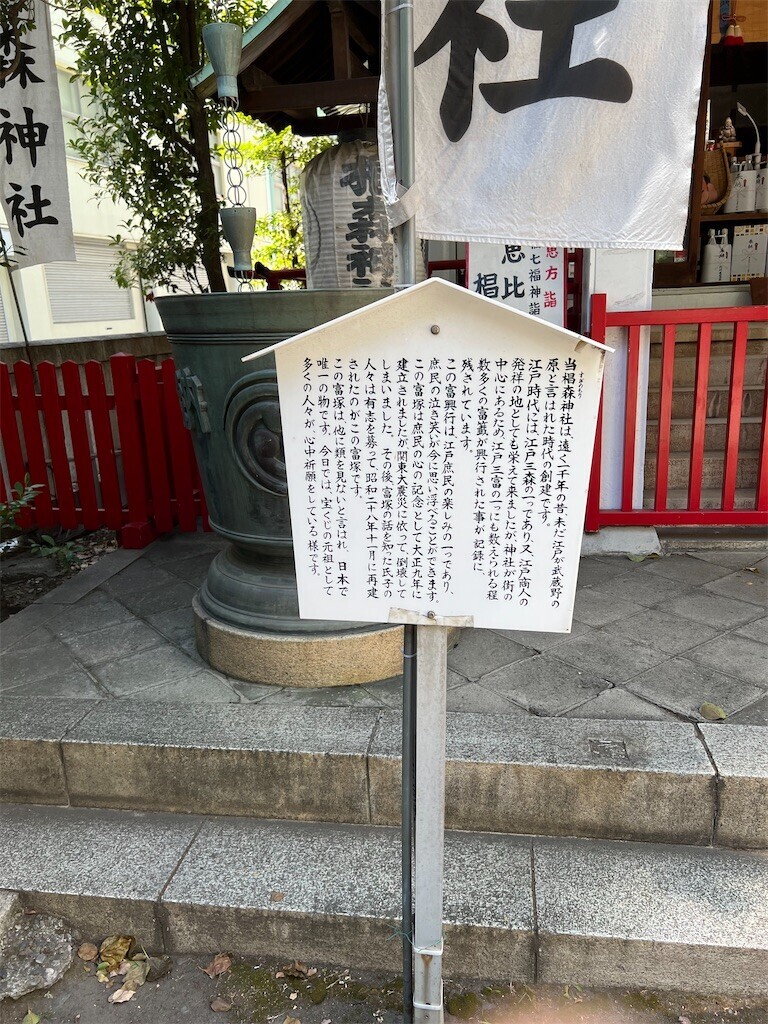 森神社
社
椙森神
恵比
七福神詣
恵方詣
椙
すぎのもり
当椙森神社は、遠く一千年の昔未だ江戸が武蔵野の
原と言はれた時代の創建です。
江戸時代には、江戸三森の一つであり、又、江戸商人の
発祥の地としても栄えて来ましたが、神社が街の
中心にあるため、江戸三富の一つにも数えられる程
数多くの富籤が興行された事が記録に、
残されています。
この富興行は、江戸庶民の楽しみの一つであり、
庶民の泣き笑いが今に思い浮べることができます。
この富塚は庶民の心の記念として大正九年に
建立されましたが関東大震災に依って、倒壊して
しまいました。その後、富塚の話を知った氏子の
人々は有志を募って、昭和二十八年十一月に再建
されたのがこの富塚です。
この富塚は、他に類を見ないと言はれ、日本で
唯一の物です。今日では、宝くじの元祖として
多くの人々が、心中祈願をしている様です。